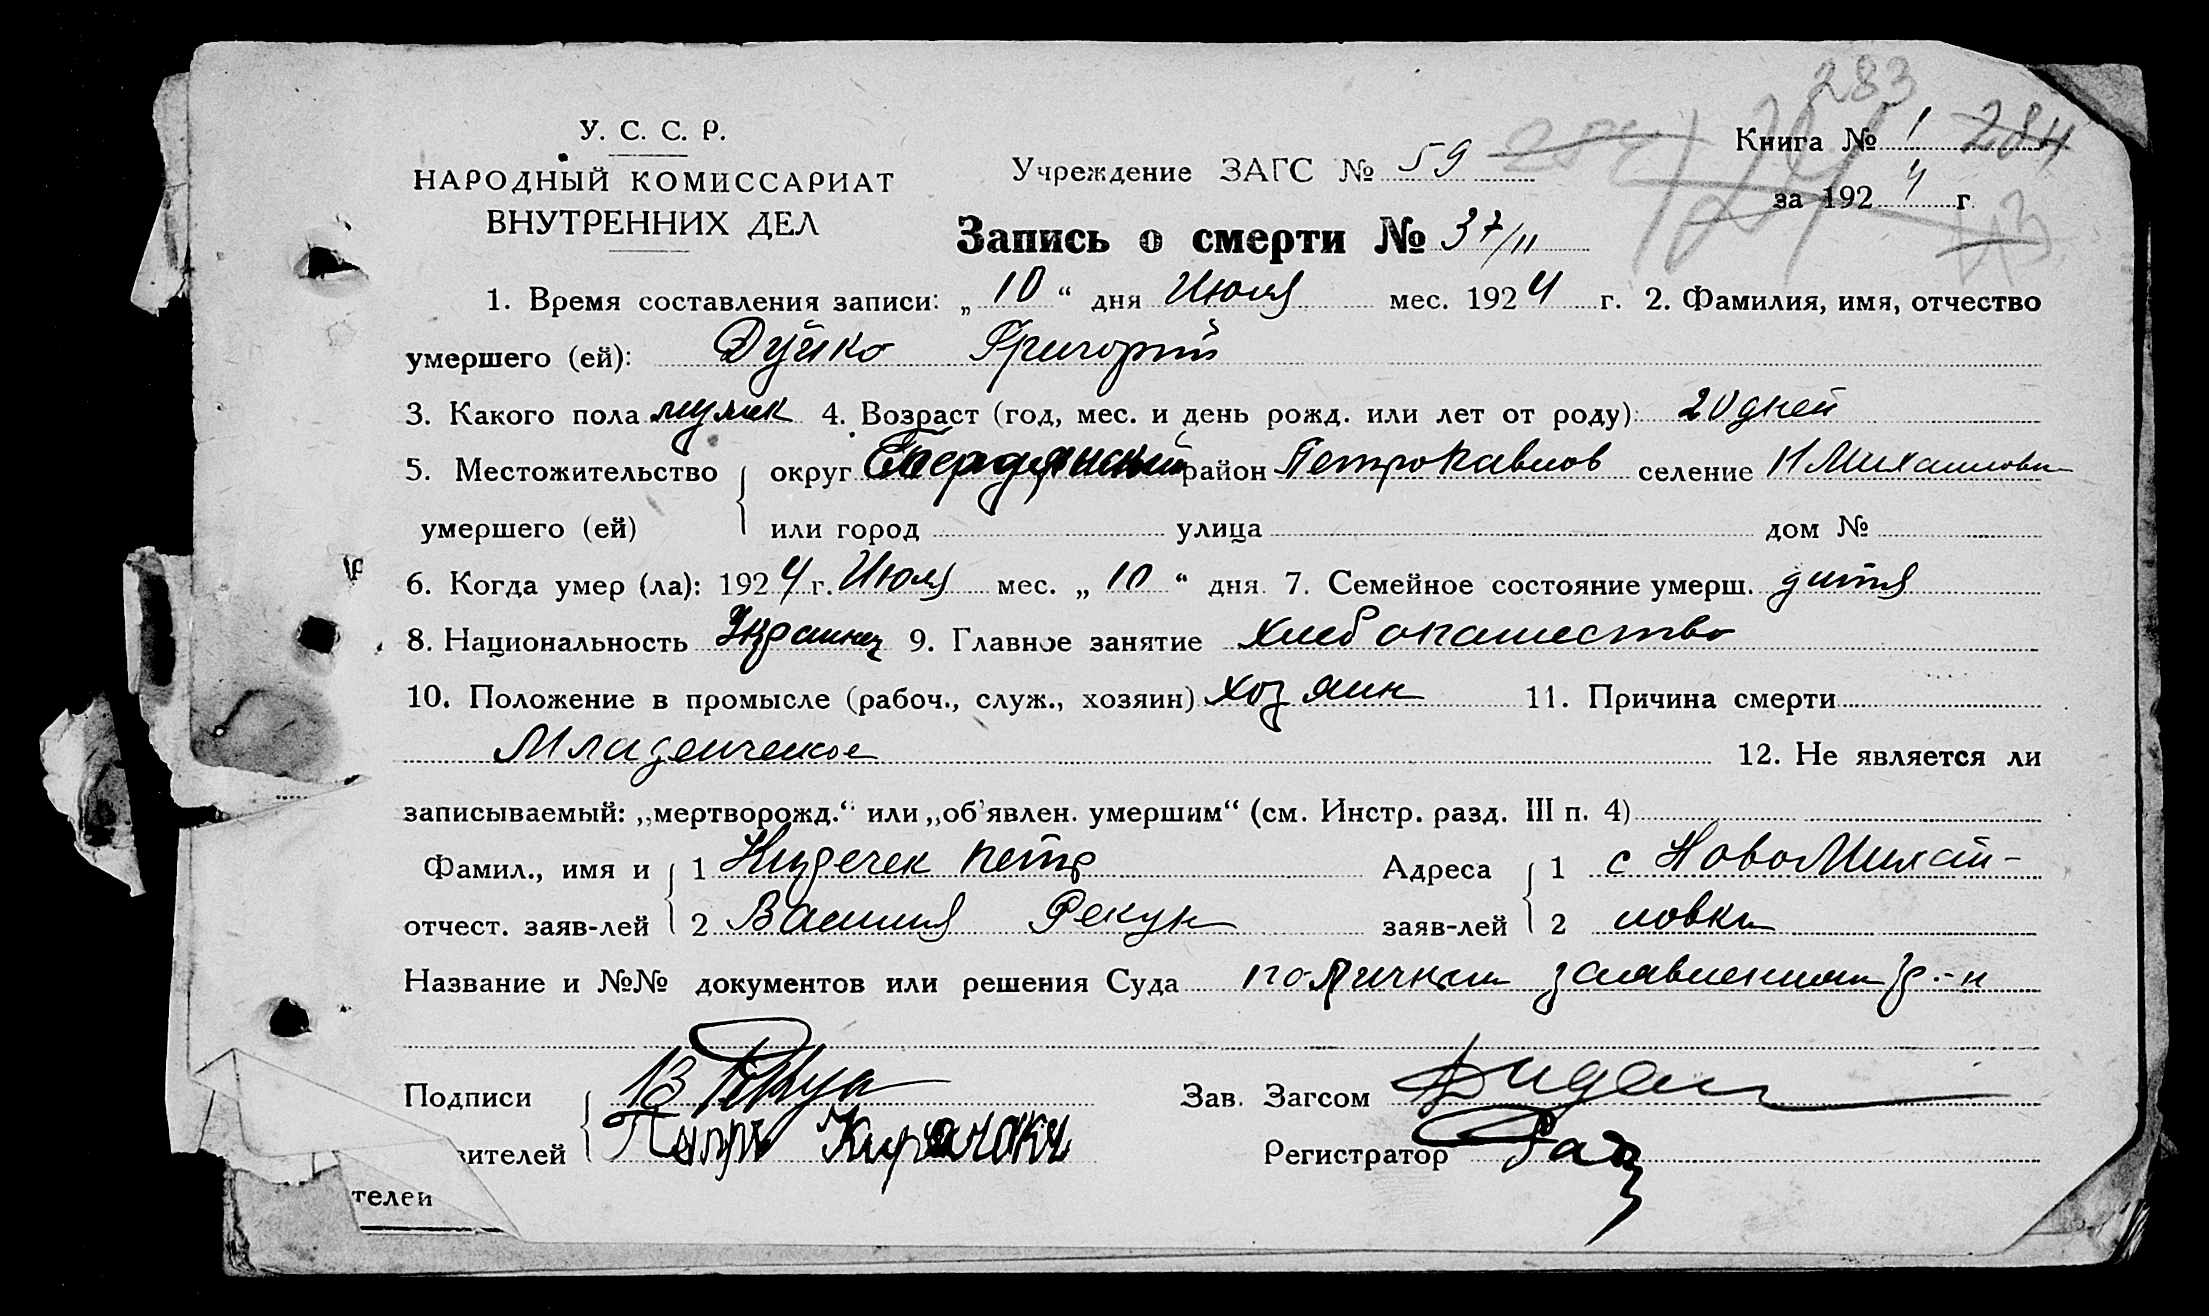 283
У. С. С. Р.
НАРОДНЫЙ КОМИССАРИАТ
ВНУТРЕННИХ ДЕЛ
Учреждение ЗАГС № 59
Книга № 1 284
за 1924 г
Запись о смерти № 37/11
1. Время составления записи: „10“ дня Июля мес. 1924 г. 2. Фамилия, имя, отчество
умершего (ей): Дуйко Григорий
3. Какого пола мужск 4. Возраст (год, мес. и день рожд. или лет от роду): 20 дней
5. Местожительство округ Бердянский район Петропавлов селение Н Михайловка
умершего (ей) или город улица дом №
6. Когда умер (ла): 1924 г. Июля мес. „10“ дня. 7. Семейное состояние умерш. дитя
8. Национальность Украинец 9. Главное занятие хлебопашество
10. Положение в промысле (рабоч., служ., хозяин) хозяин 11. Причина смерти
Младенческое
12. Не является ли
записываемый: „мертворожд.“ или „об'явлен. умершим“ (см. Инстр. разд. III п. 4)
Фамил., имя и 1 Петр Адреса 1 с НовоМихай-
отчест. заяв-лей 2 Рекун заяв-лей 2 ловка
Название и №№ документов или решения Суда по личным заявлениям
Подписи Зав. Загсом
вителей Регистратор
телей